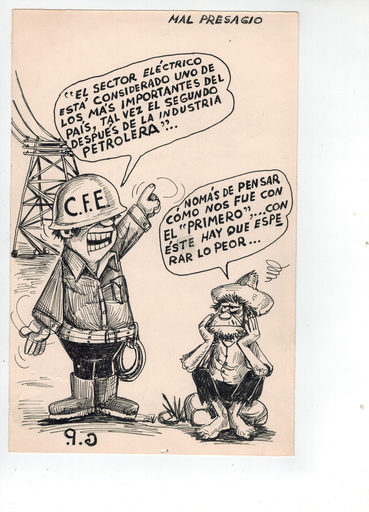 MAL PRESAGIO
"EL SECTOR ELÉCTRICO
ESTÁ CONSIDERADO UNO DE
LOS MÁS IMPORTANTES DEL
PAÍS, TAL VEZ EL SEGUNDO
DESPUÉS DE LA INDUSTRIA
PETROLERA"...
C.F.E.
NOMÁS DE PENSAR
CÓMO NOS FUE CON
EL "PRIMERO",...CON
ÉSTE HAY QUE ESPE
RAR LO PEOR...
G.P.